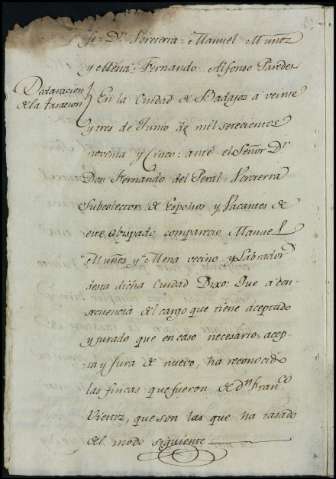 Manuel Muñoz
y Mena: Fernando Alfonso Paredes
Declaración
de la tasacion
En la Ciudad de Badajoz a veinte
y tres de Junio de mil setecientos
noventa y Cinco: ante el Señor Dr
Don Fernando del Peral
Subcolector de Espolios y Vacantes de
este Obispado, comparecio Manuel
Muñoz y Mena vecino y Labrador
desta dicha Ciudad Dixo: Que a con-
secuencia del cargo que tiene aceptado
y jurado que en caso necesario, acep-
ta y jura de nuevo, ha reconocido
las fincas que fueron de dn Franco
que son las que ha tasado
del modo siguiente